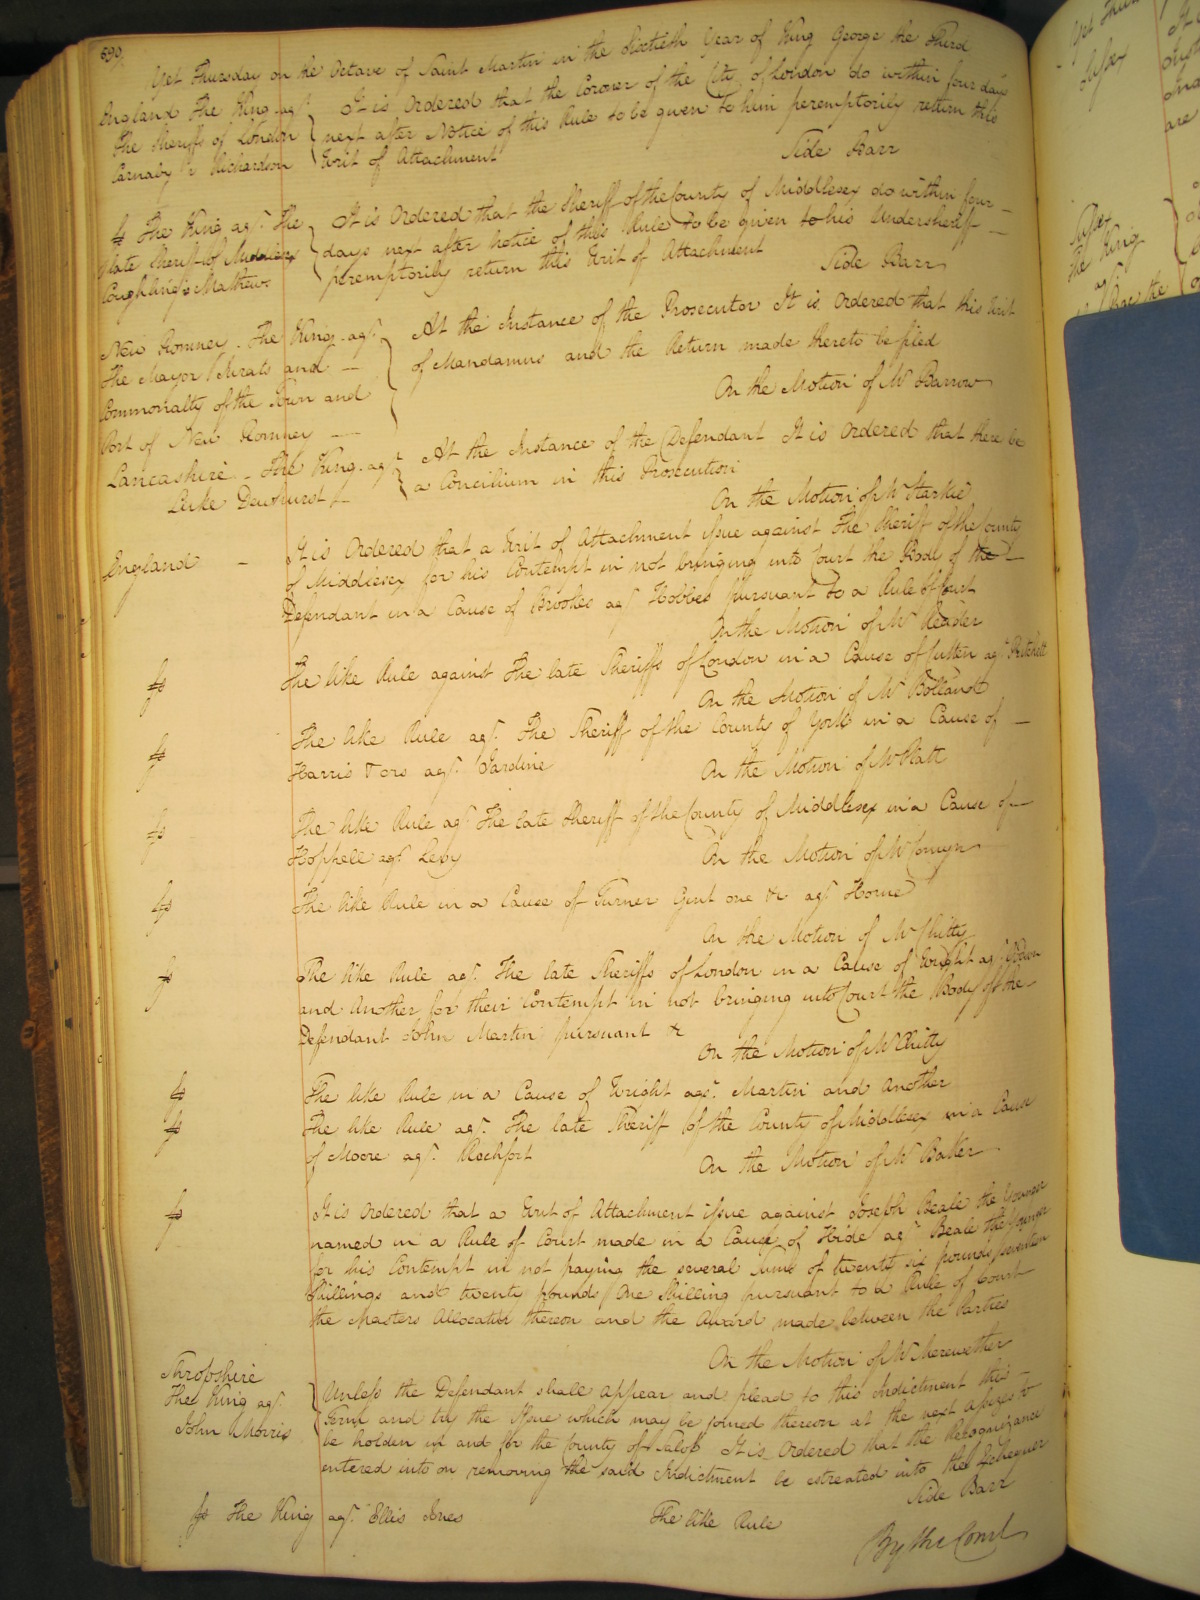 599
Yet Thursday on the Octave of Saint Martin in the Sixtieth Year of King George the Third
England The King agt.
The Sheriffs of London
Carnaby v Richardson
It is Ordered that the Coroner of the City of London do within four days
next after Notice of this Rule to be given to him peremptorily return this
Writ of Attachment
Side Barr
The King agt. The
late Sheriff of Middlesex
Mathews
It is Ordered that the Sheriff of the County of Middlesex do within four
days next after notice of this Rule to be given to his Undersheriff
peremptorily return this Writ of Attachment
Side Barr
New Romney. The King agt.
the Mayor Jurats and
Commonalty of the Town and
Port of New Romney
At the Instance of the Prosecutor It is Ordered that this Writ
of Mandamus and the Return made thereto be filed
On the Motion of Mr Barrow
Lancashire The King agt
Luke Dewhurst
At the Instance of the Defendant It is Ordered that there be
a Concilium in this Prosecution
On the Motion of Mr Starkie
England
It is Ordered that a Writ of Attachment issue against The Sheriff of the County
of Middlesex for his Contempt in not bringing into Court the Body of the
Defendant in a Cause of Brookes agt Hobbes pursuant to a Rule of Court
On the Motion of Mr Reader
The like Rule against The late Sheriffs of London in a Cause of agt Pritchett
On the Motion of Mr Bolland
The like Rule agt. The Sheriff of the County of York in a Cause of
Harris & ors agt. Jardine
On the Motion of Mr Platt
The like Rule agt The late Sheriff of the County of Middlesex in a Cause of
agt Levy
On the Motion of Mr Comyn
The like Rule in a Cause of Turner Gent one &c agt Horne
On the Motion of Mr Chitty
The like Rule agt. The late Sheriffs of London in a Cause of Wright agt
and Another for their Contempt in not bringing into Court the Body of the
Defendant John Martin pursuant &c
On the Motion of Mr Chitty
The like Rule in a Cause of Wright agt. Martin and Another
The like Rule agt. The late Sheriff of the County of Middlesex in a Cause
of Moore agt. Rochfort
On the Motion of Mr Baker
It is Ordered that a Writ of Attachment issue against Joseph Beale the Younger
named in a Rule of Court made in a Cause of Hide agt Beale the Younger
for his Contempt in not paying the several sums of twenty six pounds seventeen
Shillings and twenty pounds One Shilling pursuant to a Rule of Court
the Masters Allocatur thereon and the Award made between the Parties
On the Motion of Mr Merewether
Shropshire
The King agt.
John Morris
Unless the Defendant shall appear and plead to this Indictment this
Term and try the Issue which may be joined thereon at the next Assizes to
be holden in and for the County of Salop It is Ordered that the Recognizance
entered into on removing the said Indictment be estreated into the Exchequer
Side Barr
The King agt. Ellis Jones
The like Rule
By the Court